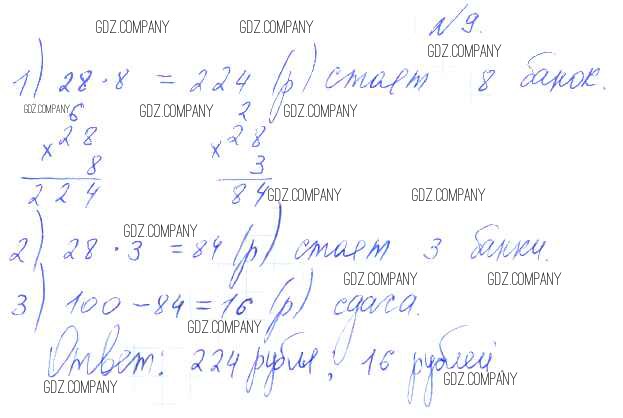 GDZ.COMPANY GDZ.COMPANY №9.
GDZ.COMPANY
1) 28·8 = 224 (р) стоят 8 банок.
GDZ.COMPANY GDZ.COMPANY GDZ.COMPANY
6 2
×28 ×28
8 3
224 84
GDZ.COMPANY GDZ.COMPANY
GDZ.COMPANY
2) 28·3 = 84 (р) стоят 3 банки.
GDZ.COMPANY GDZ.COMPANY
3) 100-84=16 (р) сдача.
GDZ.COMPANY
Ответ: 224 рубля; 16 рублей.
GDZ.COMPANY GDZ.COMPANY